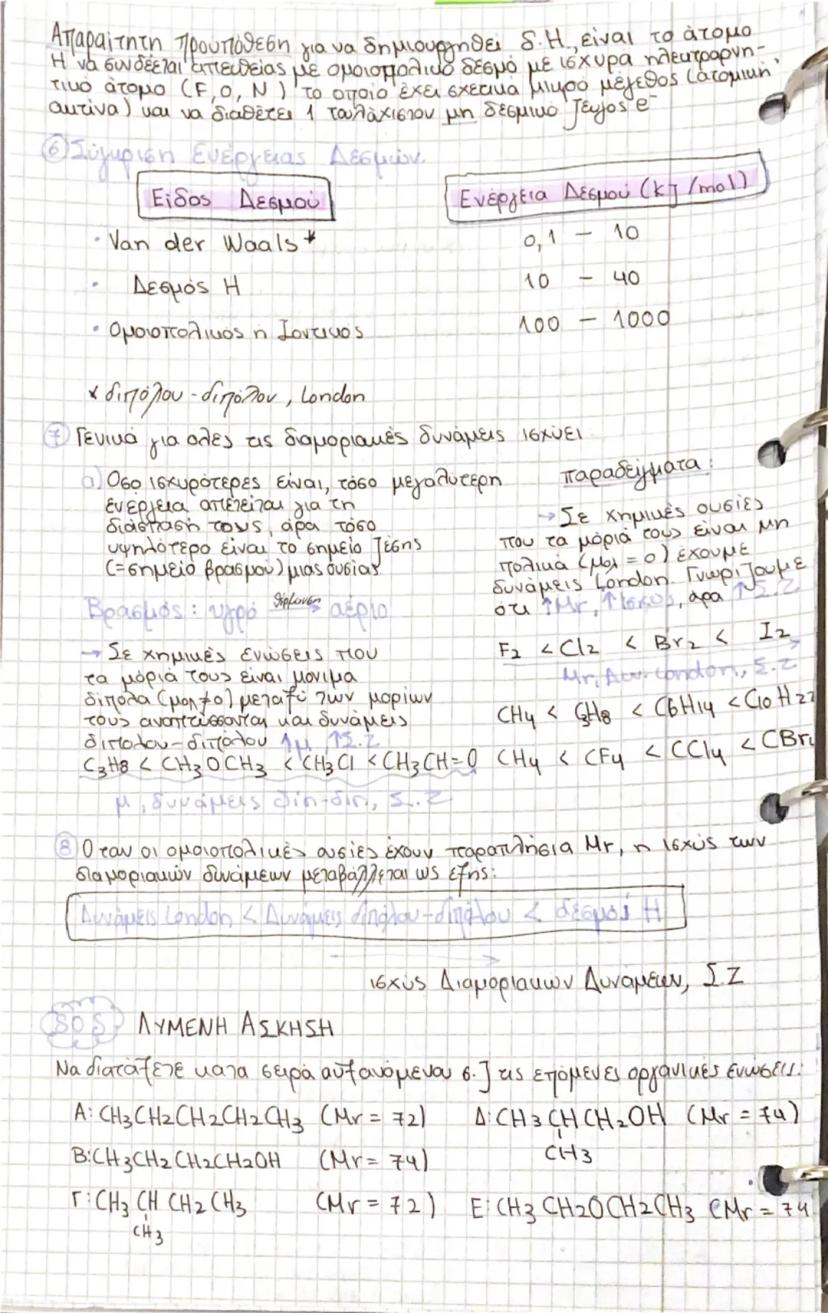 Απαραίτητη προυπόθεση για να δημιουργηθεί δ.Η., είναι το άτομο
Η να συνδέεται απευθείας με ομοιοπολικό δεσμό με ισχυρά ηλεκτραρνη-
τικό άτομο (F, O, N) το οποίο έχει σχετικά μικρό μέγεθος (ατομική
ακτίνα) και να διαθέτει 1 τουλάχιστον μη δεσμικό ζεύγος e⁻
⑥ Σύγκριση Ενέργειας Δεσμών.
Είδος Δεσμού
Ενέργεια Δεσμού (kJ/mol)
· Van der Waals *
0,1 – 10
· Δεσμός Η
10 – 40
· Ομοιοπολικός η Ιοντικος
100 – 1000
* διπόλου-διπόλου, London
⑦ Γενικά για ολες τις διαμοριακές δυνάμεις ισχύει
α) Οσο ισχυρότερες είναι, τόσο μεγαλύτερη
ενέργεια απαιτείται για τη
διάσπαση τους, άρα τόσο
υψηλότερο είναι το σημείο ζέσης
(=σημείο βρασμού) μιας ουσίας
Βρασμός: υγρό θέρμανση → αέριο
→ Σε χημικές ενώσεις που
τα μόριά τους είναι μονιμα
δίπολα (μολ≠0) μεταξύ των μορίων
τους αναπτύσσονται και δυνάμεις
διπολου-διπόλου ↑μ ↑Σ.Ζ
C₃H₈ < CH₃OCH₃ < CH₃Cl < CH₃CH=O
μ, δυνάμεις διπ-διπ, Σ.Ζ
παραδείγματα:
→ Σε χημικές ουσίες
που τα μόριά τους είναι μη
πολικά (μολ = 0) έχουμε
δυνάμεις London. Γνωρίζουμε
ότι ↑Mr, ↑ισχύς, άρα ↑Σ.Ζ
F₂ < Cl₂ < Br₂ < I₂
Mr, Δυν. London, Σ.Ζ
CH₄ < C₃H₈ < C6H14 < C10H22
CH₄ < CF₄ < CCl₄ < CBr₄
⑧ Οταν οι ομοιοπολικές ουσίες έχουν παραπλήσια Mr, η ισχύς των
διαμοριακών δυνάμεων μεταβάλλεται ως εξής:
Δυνάμεις London < Δυνάμεις διπόλου-διπόλου < δεσμοί Η
ισχύς Διαμοριακων Δυναμεων, Σ.Ζ
SOS ΛΥΜΕΝΗ ΑΣΚΗΣΗ
Να διατάξετε κατα σειρά αυξανόμενου σ.ζ τις επόμενες οργανικές ενώσεις:
Α: CH₃CH₂CH₂CH₂CH₃ (Mr = 72)
Δ: CH₃CHCH₂OH (Mr = 74)
CH₃
Β: CH₃CH₂CH₂CH₂OH (Mr = 74)
Γ: CH₃CHCH₂CH₃ (Mr = 72)
CH₃
Ε: CH₃CH₂OCH₂CH₃ (Mr = 74